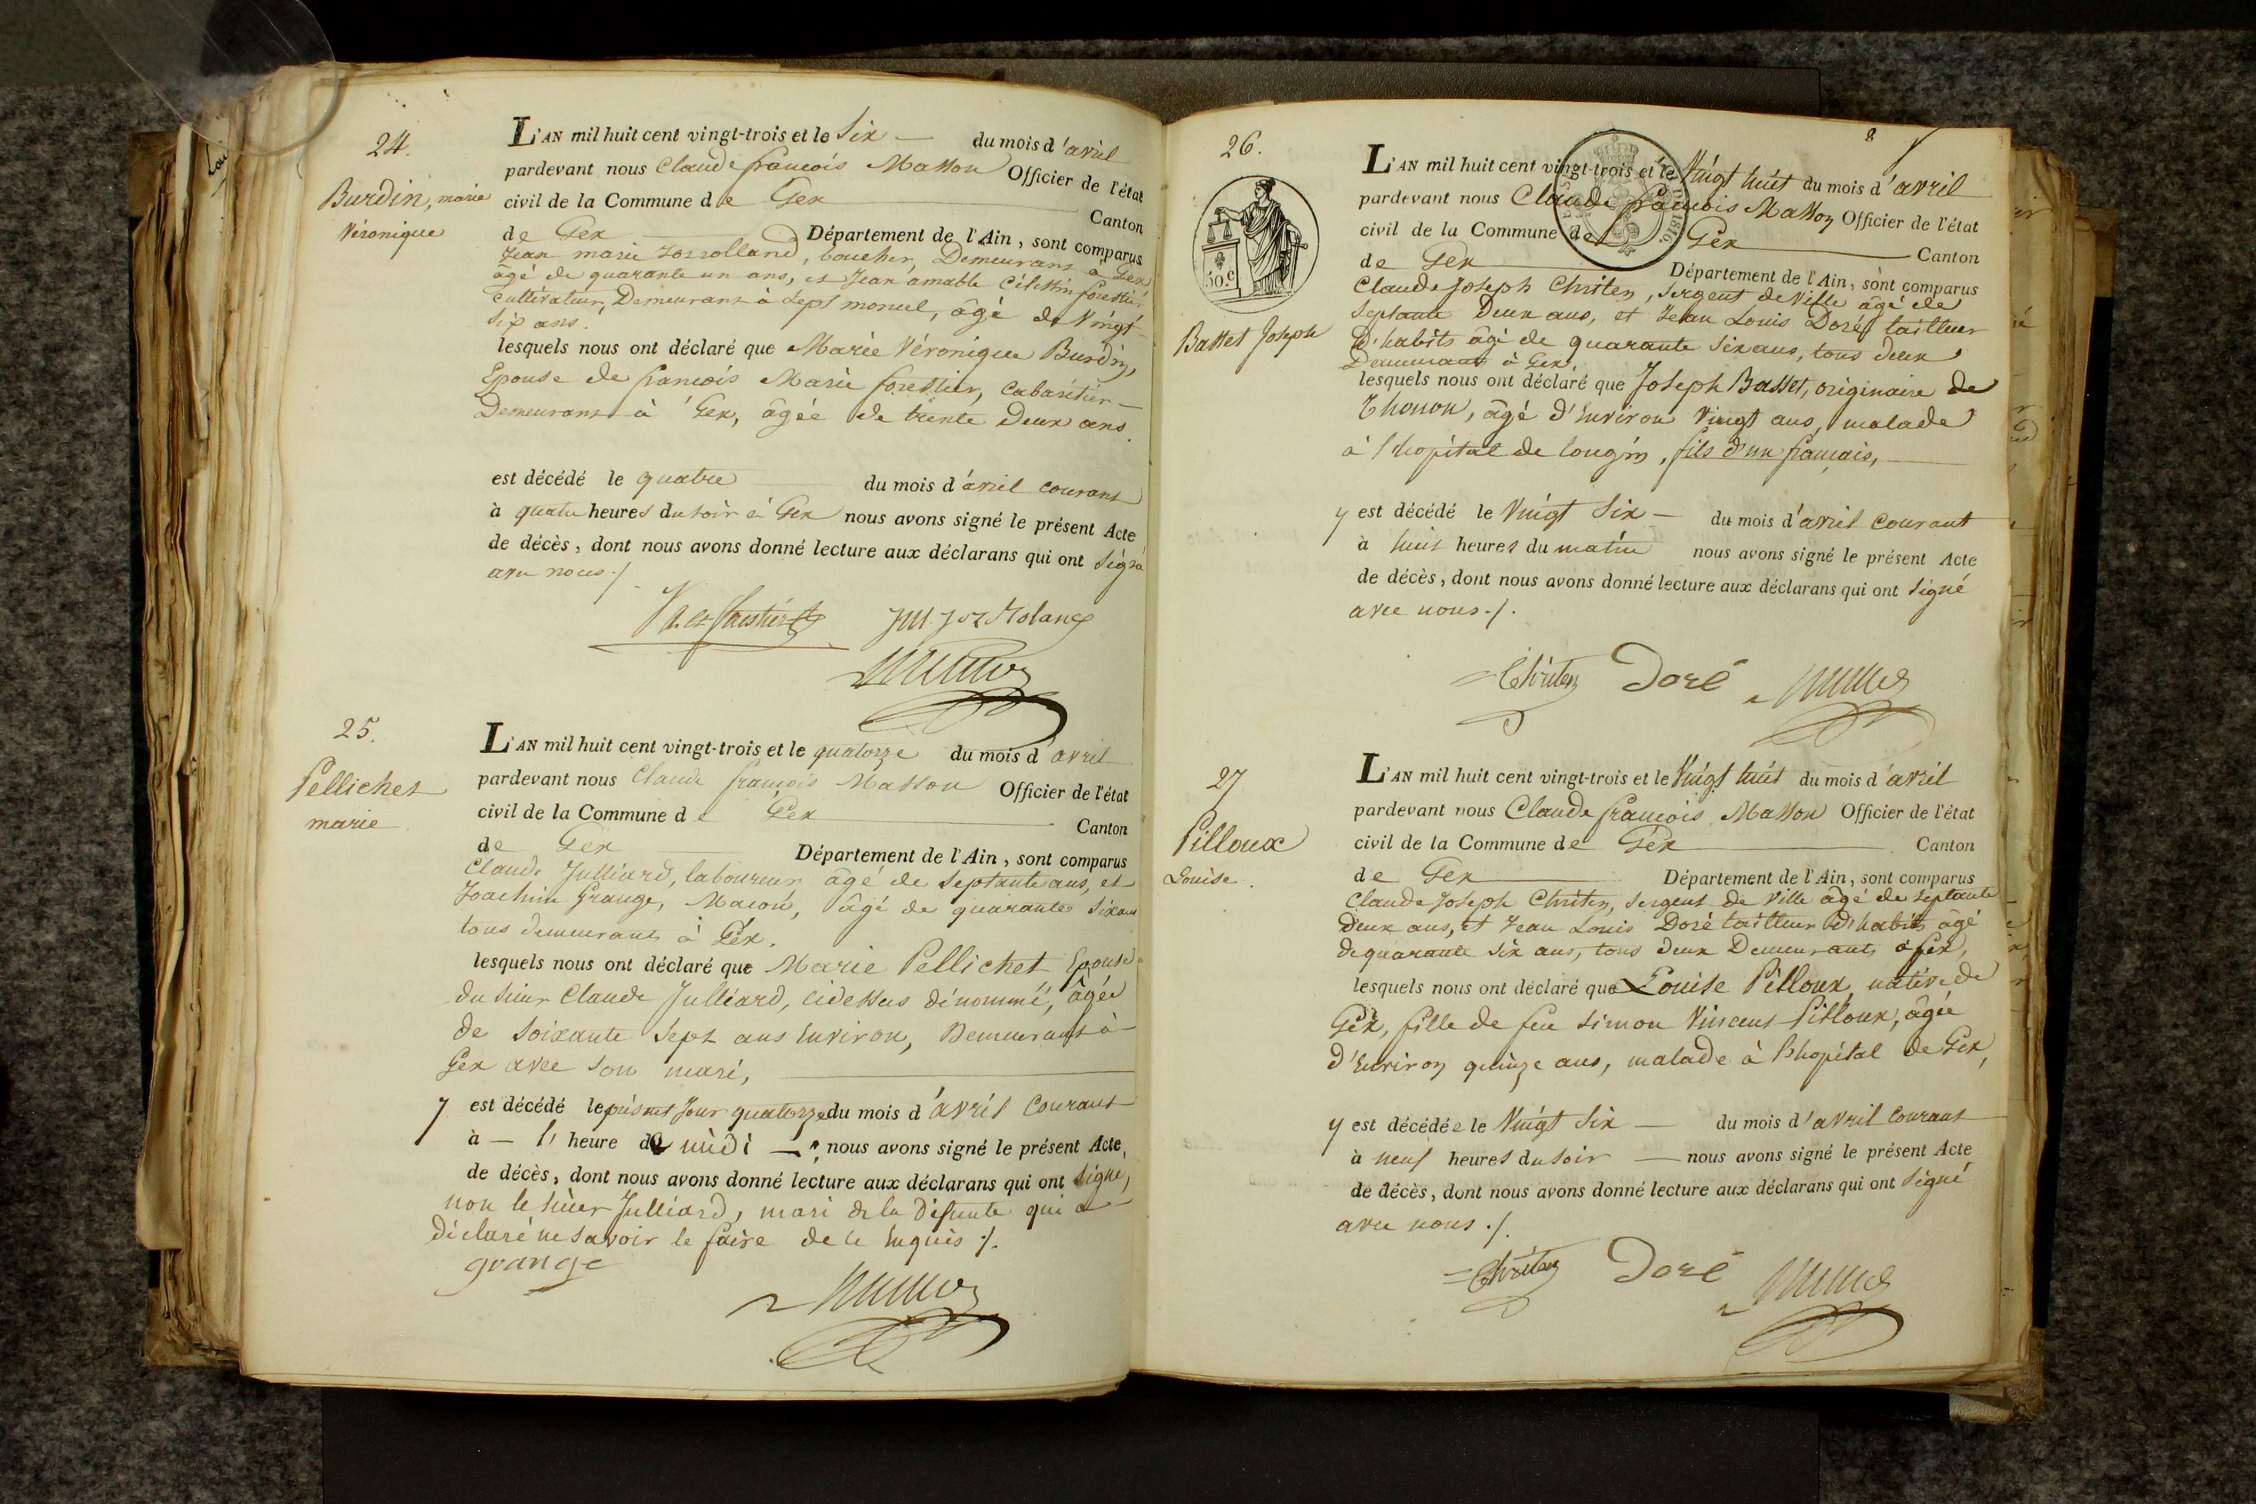 24.
Burdin, marie
Véronique
L'AN mil huit cent vingt-trois et le Six du mois d'avril
pardevant nous Claude françois Masson Officier de l'état
civil de la Commune de Gex Canton
de Gex Département de l'Ain, sont comparus
Jean marie Jozrolland, boucher, Demeurant à Gex
âgé de quarante un ans, et Jean amable Célestin forestier
cultivateur, Demeurant à Sept moncel, âgé de Vingt
Six ans.
lesquels nous ont déclaré que Marie Véronique Burdin,
Epouse de françois Marie forestier, Cabarétier
Demeurant à Gex, âgée de trente Deux ans.
est décédé le quatre du mois d'avril courant
à quatre heures du soir à Gex nous avons signé le présent Acte
de décès, dont nous avons donné lecture aux déclarans qui ont Signé
avec nous ./.
25.
Pellichet
marie
L'AN mil huit cent vingt-trois et le quatorze du mois d'avril
pardevant nous Claude françois Masson Officier de l'état
civil de la Commune de Gex Canton
de Gex Département de l'Ain, sont comparus
Claude Julliard, laboureur âgé de Septante ans, et
Joachim Grange, Macon, âgé de quarante Six ans
tous demeurant à Gex.
lesquels nous ont déclaré que Marie Pellichet Epouse
du Sieur Claude Julliard, cidessus dénommé, âgée
de Soixante Sept ans Environ, Demeurant à
Gex avec son mari,
y est décédé le présent Jour quatorze du mois d'avril Courant
à l'heure de midi nous avons signé le présent Acte,
de décès, dont nous avons donné lecture aux déclarans qui ont Signé,
non le Sieur Julliard, mari de la Défunte qui a
déclaré ne Savoir le faire de ce Enquis ./.
grange
8
26.
50 c
Basset Joseph
L'AN mil huit cent vingt-trois et le Vingt huit du mois d'avril
pardevant nous Claude françois Masson Officier de l'état
civil de la Commune de Gex Canton
de Gex Département de l'Ain, sont comparus
Claude Joseph Christen, Sergent de Ville âgé de
Septante Deux ans, et Jean Louis Doré tailleur
d'habits âgé de quarante Six ans, tous deux
Demeurant à Gex,
lesquels nous ont déclaré que Joseph Basset, originaire de
Thonon, âgé d'Environ Vingt ans, malade
à l'hopital de Tougin, fils d'un français,
y est décédé le Vingt Six du mois d'avril Courant
à huit heures du matin nous avons signé le présent Acte
de décès, dont nous avons donné lecture aux déclarans qui ont Signé
avec nous ./.
Christen Doré
27
Pilloux
Louise.
L'AN mil huit cent vingt-trois et le Vingt huit du mois d'avril
pardevant nous Claude françois Masson Officier de l'état
civil de la Commune de Gex Canton
de Gex Département de l'Ain, sont comparus
Claude Joseph Christen, Sergent de Ville âgé de Septante
Deux ans, et Jean Louis Doré tailleur d'habits âgé
de quarante Six ans, tous deux Demeurant à Gex,
lesquels nous ont déclaré que Louise Pilloux, native de
Gex, fille de feu Simon Vincent Pilloux, âgée
d'Environ quinze ans, malade à l'hopital de Gex,
y est décédée le Vingt Six du mois d'avril Courant
à neuf heures du soir nous avons signé le présent Acte
de décès, dont nous avons donné lecture aux déclarans qui ont Signé
avec nous ./.
Christen Doré